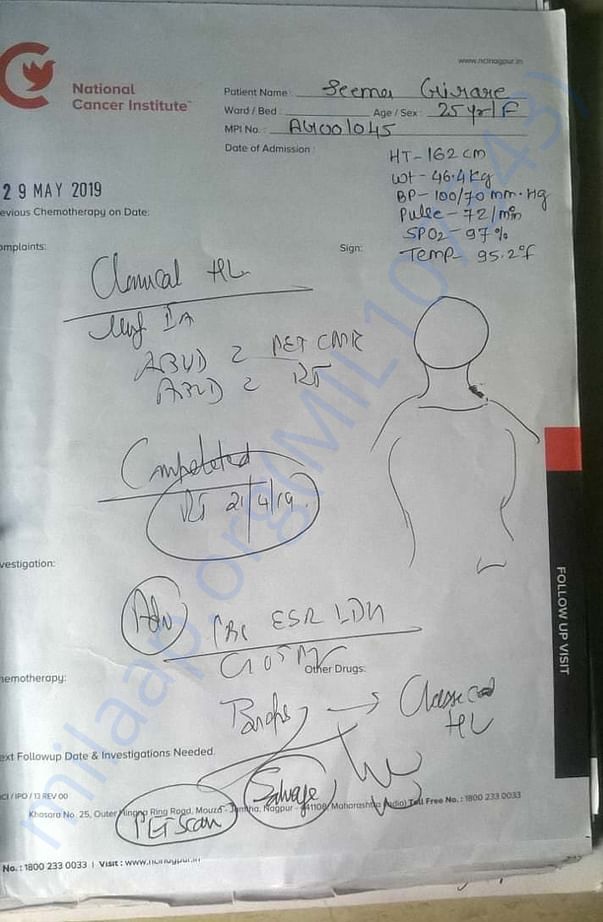 www.ncinagpur.in
National
Cancer Institute™
Patient Name : Seema Girare
Ward / Bed : Age / Sex : 25 yr / F
MPI No. : AG001045
Date of Admission :
HT - 162 cm
Wt - 46.4 kg
BP - 100/70 mm.Hg
Pulse - 72/min
SPO2 - 97%
Temp 95.2°F
29 MAY 2019
evious Chemotherapy on Date:
omplaints:
Sign:
Classical HL
IIA
ABVD 2 PET CMR
ABVD 2 RT
Completed
RT 21/4/19
vestigation:
Adv
CBC ESR LDH
hemotherapy:
Other Drugs:
→ Classical
HL
ext Followup Date & Investigations Needed.
Salvage
PET Scan
CI / IPO / 13 REV 00
Khasara No. 25, Outer Hingna Ring Road, Mouza - Jamtha, Nagpur - 441108, Maharashtra (India) Toll Free No. : 1800 233 0033
No. : 1800 233 0033 | Visit : www.ncinagpur.in
FOLLOW UP VISIT